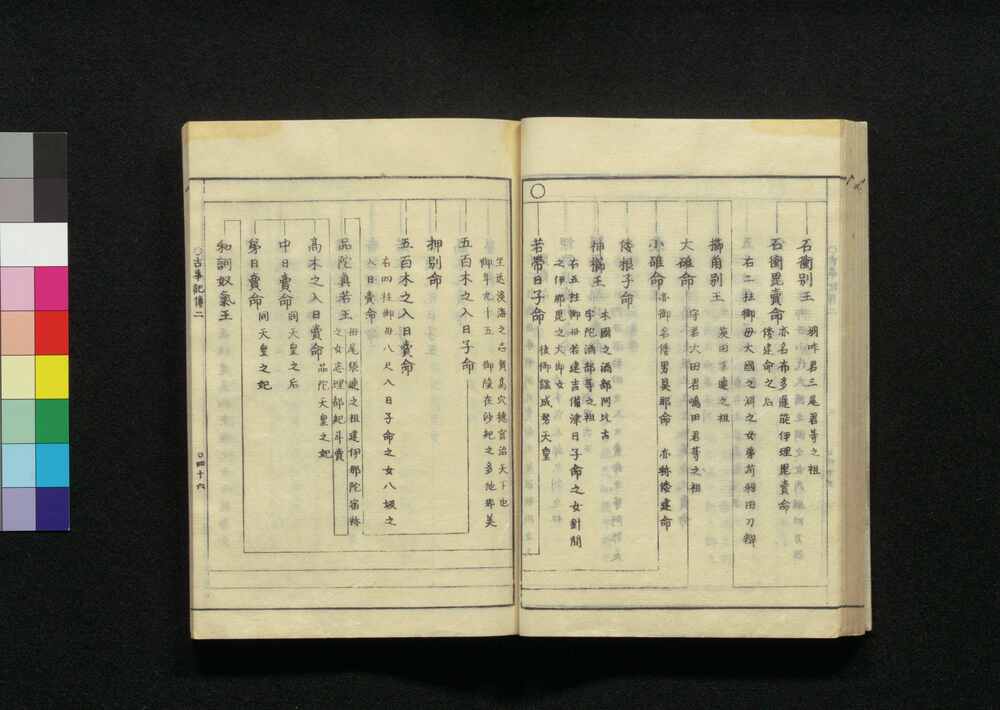 ○
石衝別王
羽咋君三尾君等之祖
石衝毘賣命
亦名布多遲能伊理毘賣命
倭建命之后
右二柱御母大國之淵之女弟苅羽田刀辨
櫛角別王
茨田下連之祖
大碓命
守君大田君嶋田君等之祖
小碓命
亦御名倭男具那命 亦稱倭建命
倭根子命
神櫛王
木國之酒部阿比古
宇陀酒部等之祖
右五柱御母若建吉備津日子命之女針間
之伊那毘之大郎女
若帶日子命
後御謚成務天皇
坐近淡海之志賀高穴穗宮治天下也
御年九十五 御陵在沙紀之多他那美
五百木之入日子命
押別命
五百木之入日賣命
右四柱御母八尺入日子命之女八坂之
入日賣命
品陀眞若王
尾張連之祖建伊那陀宿祢
之女志理都紀斗賣
高木之入日賣命
品陀天皇之妃
中日賣命
同天皇之后
弟日賣命
同天皇之妃
和訶奴氣王
○古事記傳二
○四十六